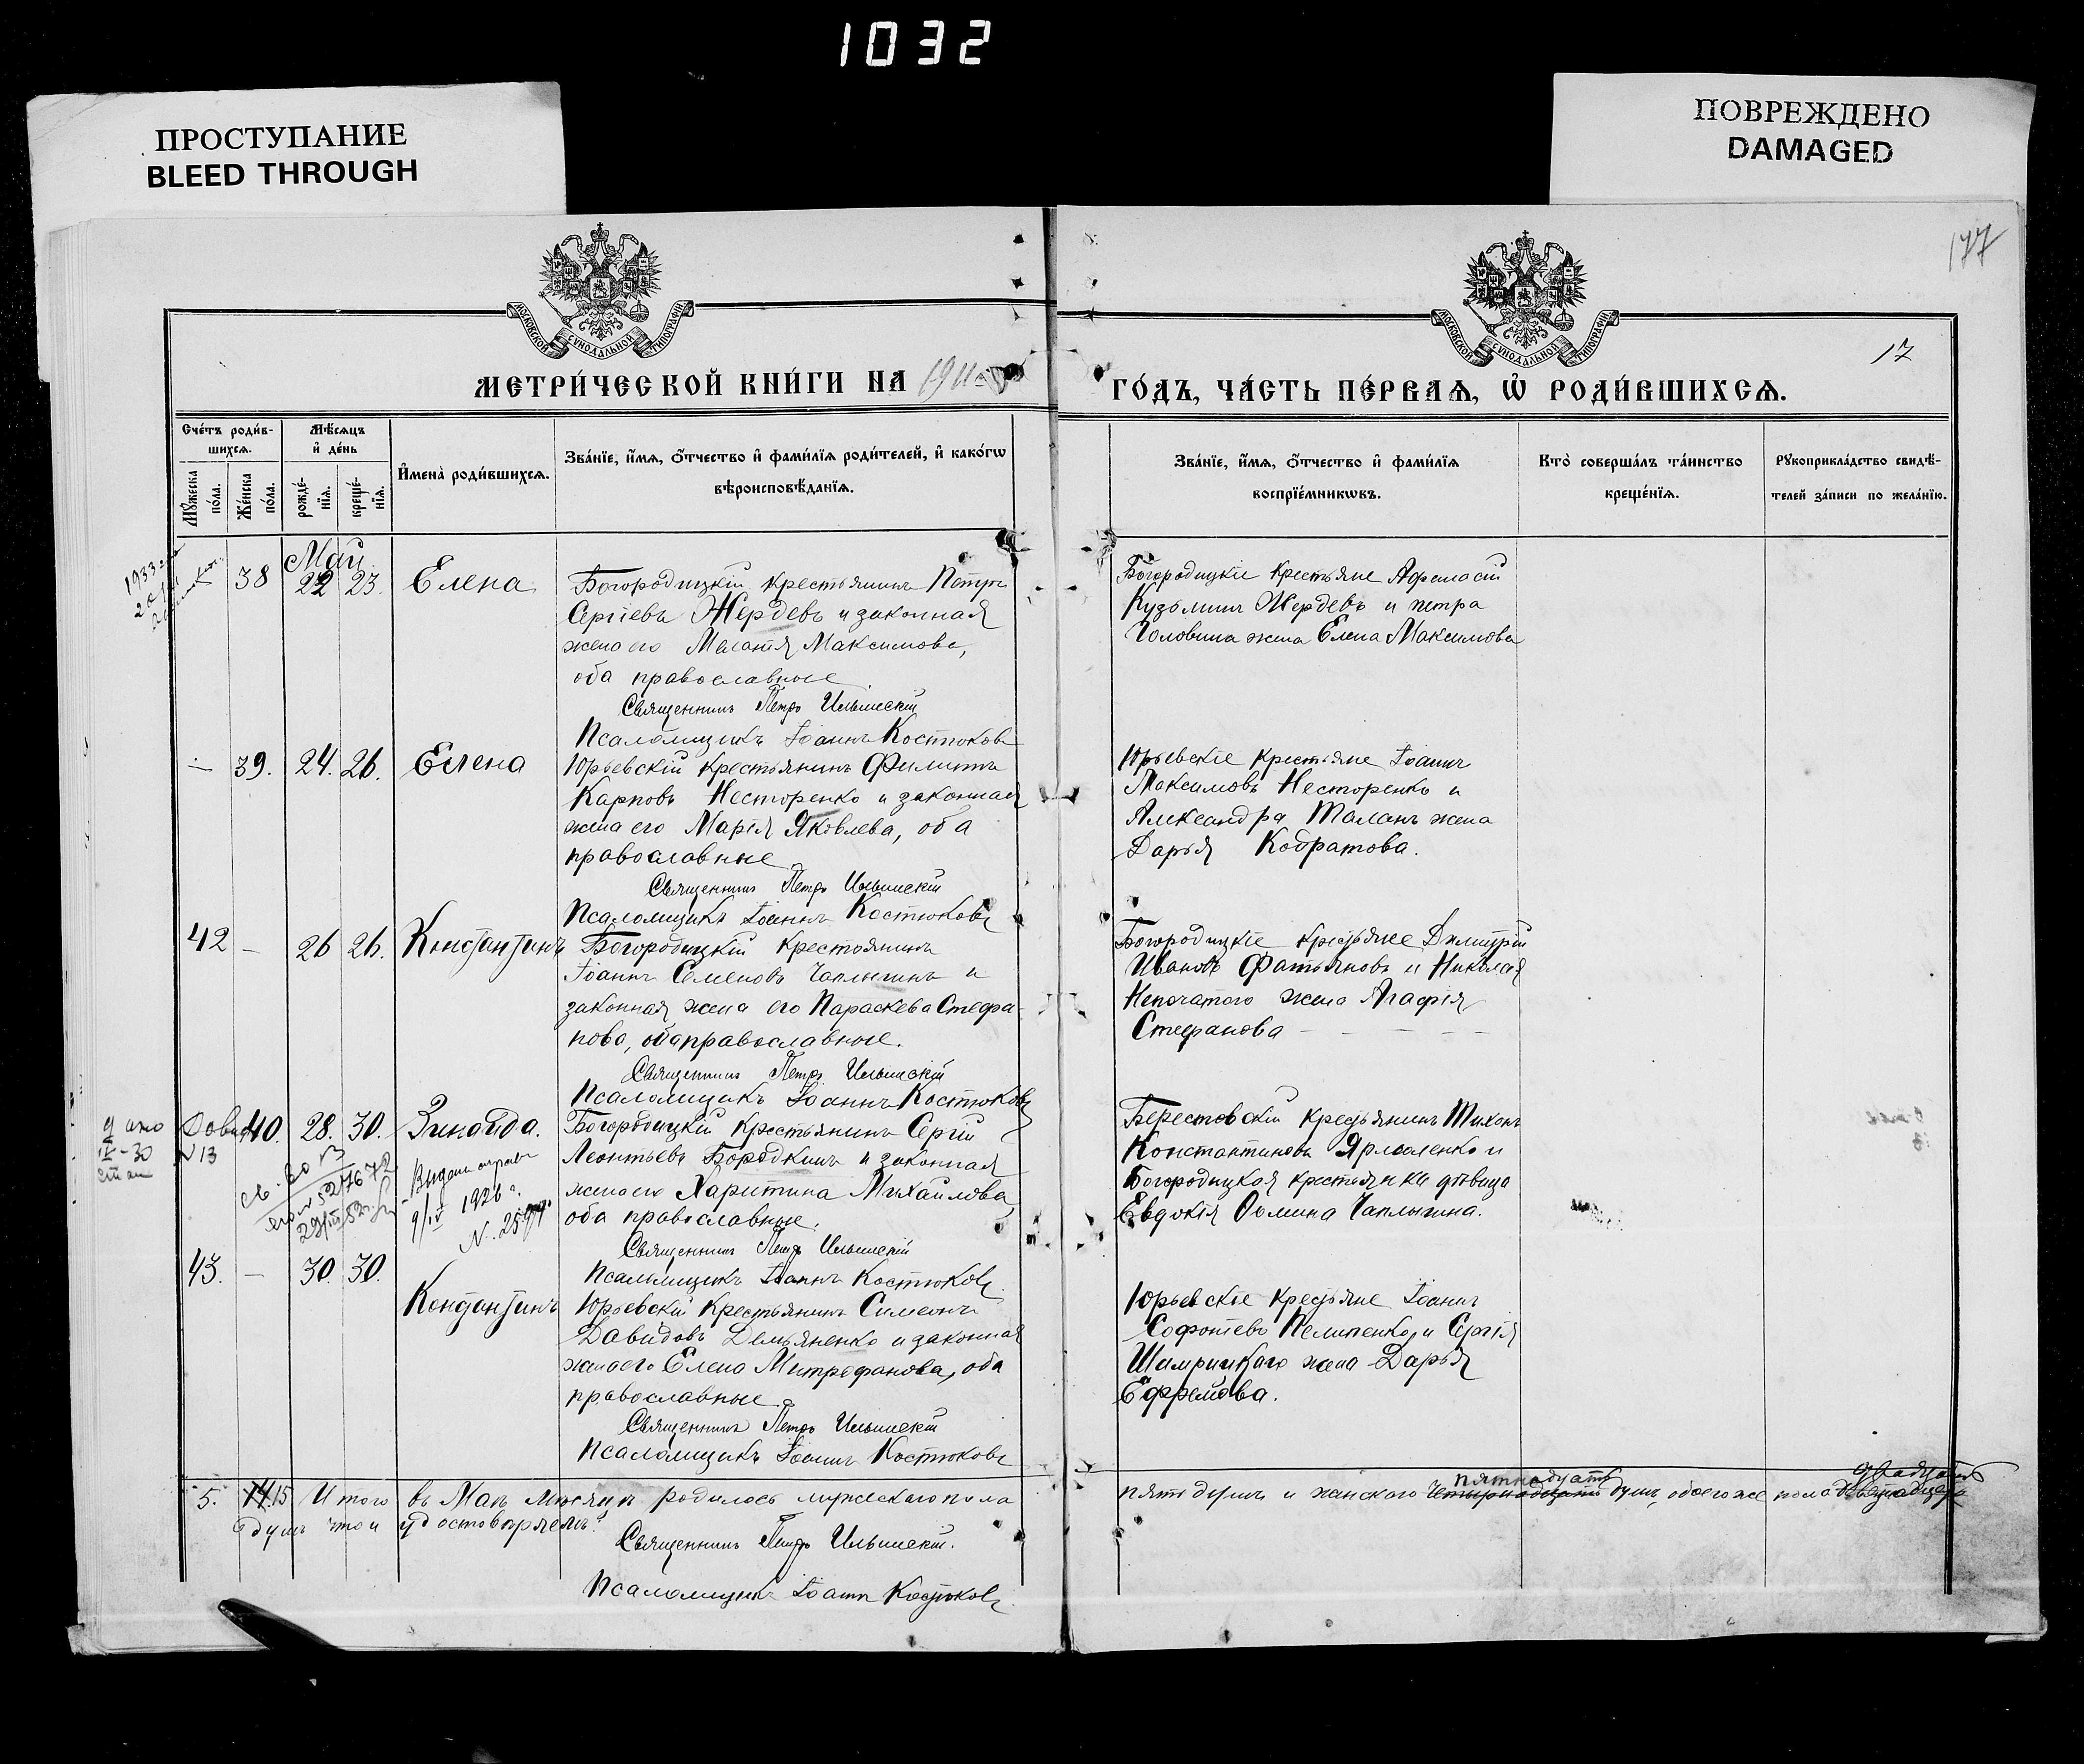 1032
ПРОСТУПАНИЕ
BLEED THROUGH
ПОВРЕЖДЕНО
DAMAGED
177
МОСКОВСКОЙ СУНОДАЛЬНОЙ ТИПОГРАФІИ
МОСКОВСКОЙ СУНОДАЛЬНОЙ ТИПОГРАФІИ
17
МЕТРИ́ЧЕСКОЙ КНИ́ГИ НА 1911
ГО́ДЪ, ЧА́СТЬ ПЕ́РВАѦ, Ѡ РОДИ́ВШИХСѦ.
Сче́тъ роди́в-
шихсѧ.
Мꙋ́жеска по́ла.
Же́нска по́ла.
Мѣ́сѧцъ
и҆ де́нь
рожде́-
нїѧ.
креще́-
нїѧ.
И҆мена̀ роди́вшихсѧ.
Зва́нїе, и҆́мѧ, ѻ҆́тчество и҆ фами́лїѧ роди́телей, и҆ како́гѡ
вѣроисповѣ́данїѧ.
Зва́нїе, и҆́мѧ, ѻ҆́тчество и҆ фами́лїѧ
воспрїе́мникѡвъ.
Кто̀ соверша́лъ та́инство
креще́нїѧ.
Рꙋкоприкла́дство свидѣ́-
телей за́писи по жела́нїю.
1933
Май
— 38 22 23. Елена
Богородицкій крестьянинъ Петръ
Сергіевъ Жердевъ и законная
жена его Меланія Максимова,
оба православные
Священникъ Петръ Ильинскій
Псаломщикъ Іоаннъ Костюковъ
Богородицкіе крестьяне Афанасій
Кузьминъ Жердевъ и петра
Головина жена Елена Максимова
— 39. 24. 26. Елена
Юрьевскій крестьянинъ Филиппъ
Карповъ Несторенко и законная
жена его Марія Яковлева, оба
православные
Священникъ Петръ Ильинскій
Псаломщикъ Іоаннъ Костюковъ
Юрьевскіе крестьяне Іоаннъ
Максимовъ Несторенко и
Александра Таланъ жена
Дарья Кобратова.
42 — 26 26. Константинъ
Богородицкій крестьянинъ
Іоаннъ Семеновъ Чаплыгинъ и
законная жена его Параскева Стефа-
нова, оба православные.
Священникъ Петръ Ильинскій
Псаломщикъ Іоаннъ Костюковъ
Богородицкіе крестьяне Димитрій
Ивановъ Фатьяновъ и Николая
Непочатого жена Агафія
Стефанова
40. 28. 30. Зинаида.
N 13
IX-30
1926 г.
Богородицкій крестьянинъ Сергій
Леонтьевъ Бородкинъ и законная
жена его Харитина Михайлова,
оба православные.
Священникъ Петръ Ильинскій
Псаломщикъ Іоаннъ Костюковъ
Берестовскій крестьянинъ Тихонъ
Константиновъ Ярмоленко и
Богородицкая крестьянка дѣвица
Евдокія Фомина Чаплыгина.
43. — 30. 30. Константинъ
Юрьевскій крестьянинъ Симеонъ
Давидовъ Демьяненко и законная
жена его Елена Митрофанова, оба
православные.
Священникъ Петръ Ильинскій
Псаломщикъ Іоаннъ Костюковъ
Юрьевскіе крестьяне Іоаннъ
Софотевъ Пелипенко, и Сергія
жена Дарья
Ефремова.
5. 14 15 Итого въ Маѣ мѣсяцѣ родилось мужескаго пола
пять душъ и женского четырнадцать пятнадцать душъ, обоего же пола двадцать
душъ что и удостовѣряемъ:
Священникъ Петръ Ильинскій.
Псаломщикъ Іоаннъ Костюковъ